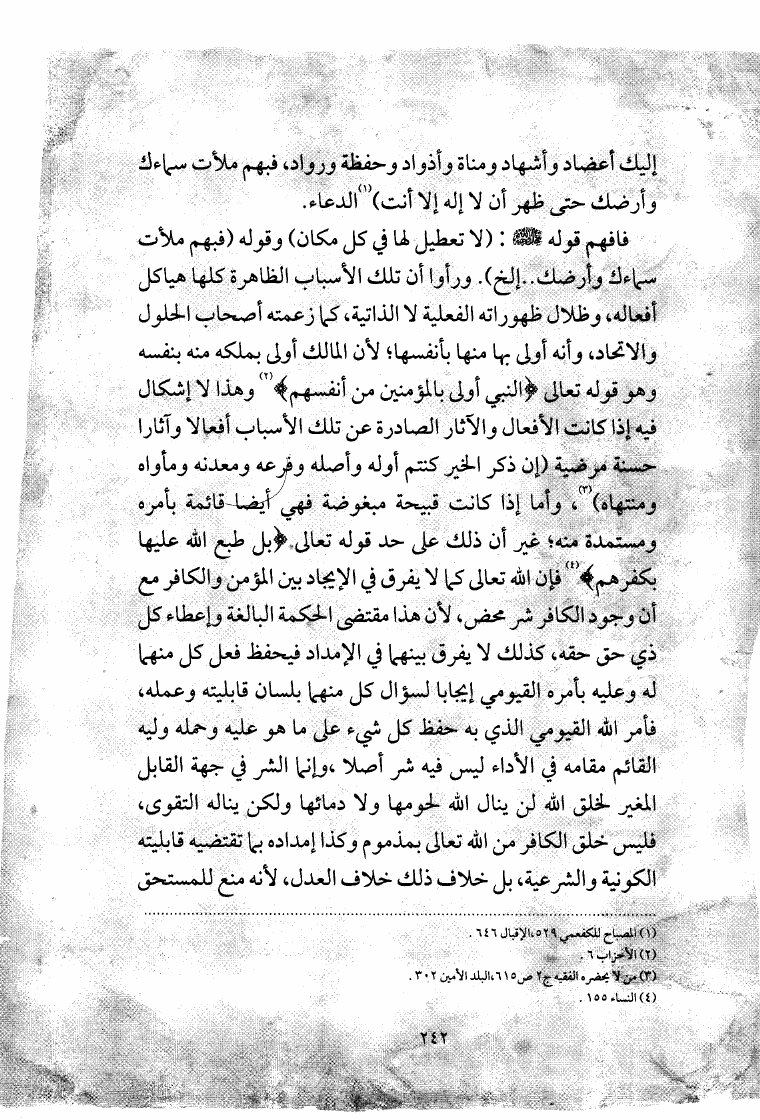 إليك أعضاد وأشهاد ومناة وأذواد وحفظة ورواد، فبهم ملأت سماءك
وأرضك حتى ظهر أن لا إله إلا أنت)(١) الدعاء.
فافهم قوله ﷺ : (لا تعطيل لها في كل مكان) وقوله (فبهم ملأت
سماءك وأرضك..إلخ). ورأوا أن تلك الأسباب الظاهرة كلها هياكل
أفعاله، وظلال ظهوراته الفعلية لا الذاتية، كما زعمته أصحاب الحلول
والاتحاد، وأنه أولى بها منها بأنفسها؛ لأن المالك أولى بملكه منه بنفسه
وهو قوله تعالى ﴿النبي أولى بالمؤمنين من أنفسهم﴾(٢) وهذا لا إشكال
فيه إذا كانت الأفعال والآثار الصادرة عن تلك الأسباب أفعالا وآثارا
حسنة مرضية (إن ذكر الخير كنتم أوله وأصله وفرعه ومعدنه ومأواه
ومنتهاه)(٣)، وأما إذا كانت قبيحة مبغوضة فهي أيضا قائمة بأمره
ومستمدة منه؛ غير أن ذلك على حد قوله تعالى ﴿بل طبع الله عليها
بكفرهم﴾(٤) فإن الله تعالى كما لا يفرق في الإيجاد بين المؤمن والكافر مع
أن وجود الكافر شر محض، لأن هذا مقتضى الحكمة البالغة وإعطاء كل
ذي حق حقه، كذلك لا يفرق بينهما في الإمداد فيحفظ فعل كل منهما
له وعليه بأمره القيومي إيجابا لسؤال كل منهما بلسان قابليته وعمله،
فأمر الله القيومي الذي به حفظ كل شيء على ما هو عليه وحمله وليه
القائم مقامه في الأداء ليس فيه شر أصلا ،وإنما الشر في جهة القابل
المغير لخلق الله لن ينال الله لحومها ولا دمائها ولكن يناله التقوى،
فليس خلق الكافر من الله تعالى بمذموم وكذا إمداده بما تقتضيه قابليته
الكونية والشرعية، بل خلاف ذلك خلاف العدل، لأنه منع للمستحق
(١) المصباح للكفعمي ٥٢٩،الإقبال ٦٤٦ .
(٢) الأحزاب ٦ .
(٣) من لا يحضره الفقيه ج٢ ص٦١٥،البلد الأمين ٣٠٢ .
(٤) النساء ١٥٥ .
٢٤٢